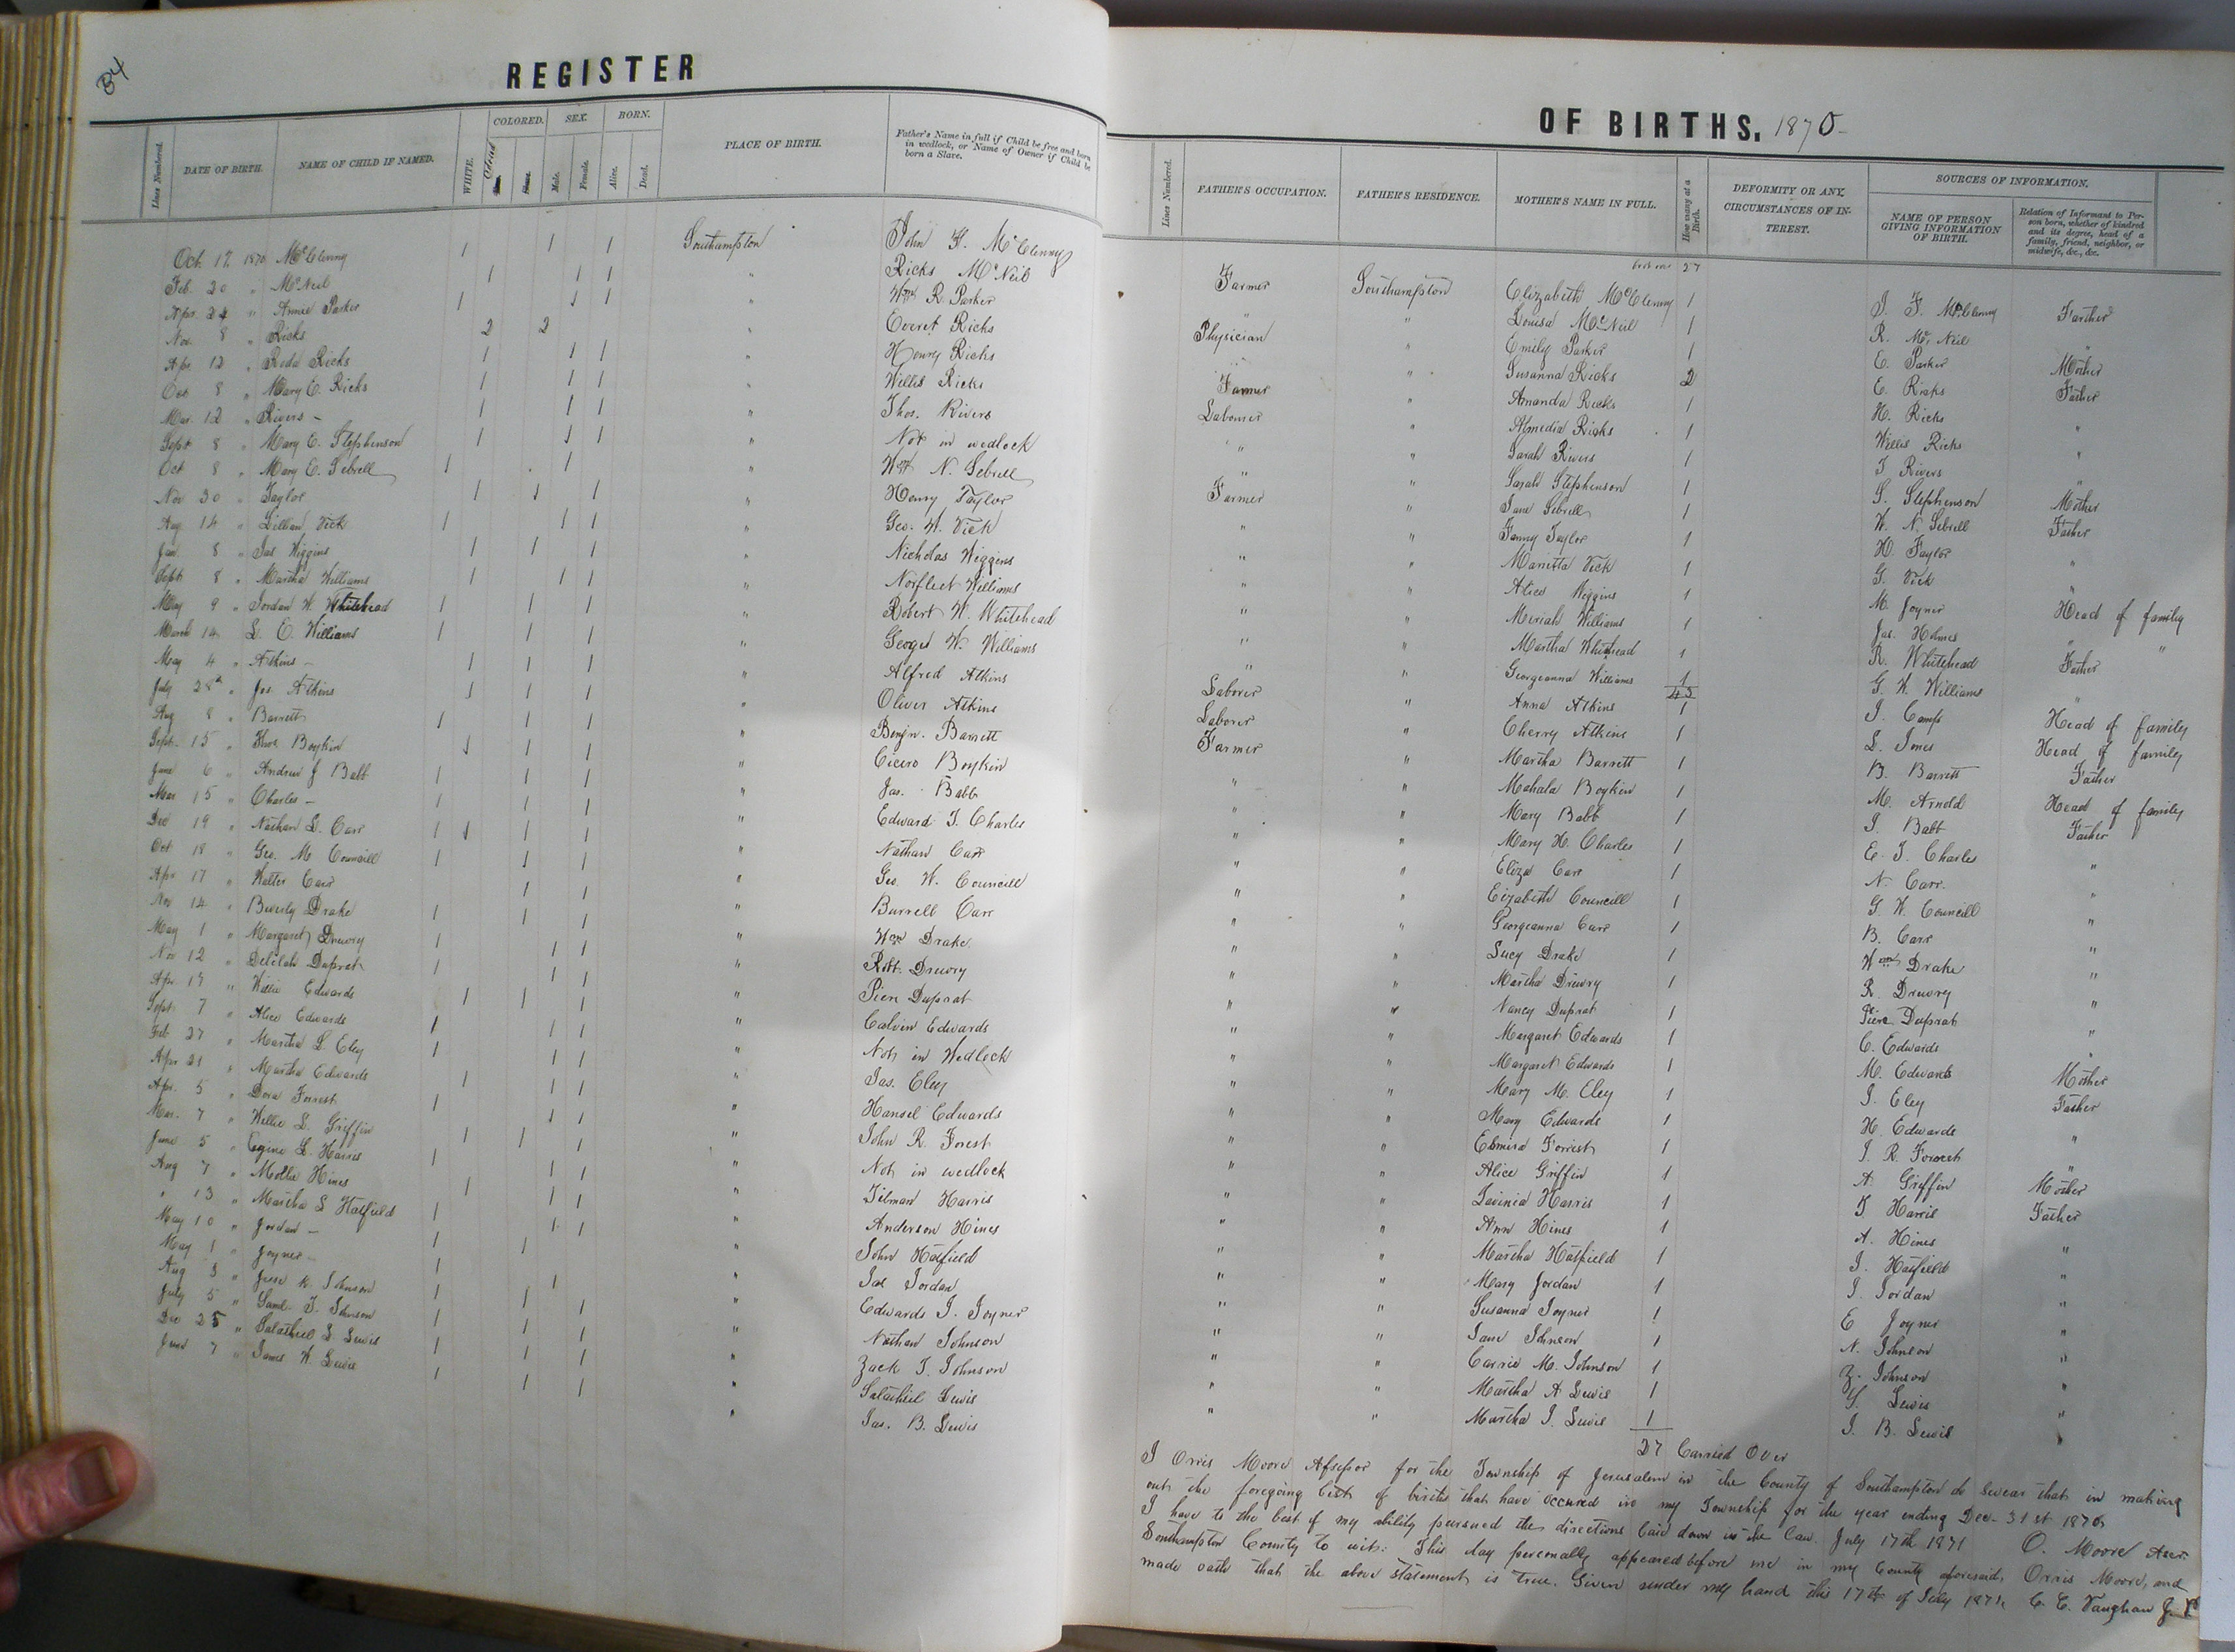 34
REGISTER
OF BIRTHS, 1870
Lines Numbered. DATE OF BIRTH. NAME OF CHILD IF NAMED. WHITE. COLORED. SEX. Male. Female. BORN. Alive. Dead. PLACE OF BIRTH. Father's Name in full if Child be free and born in wedlock, or Name of Owner if Child be born a Slave.
Lines Numbered. FATHER'S OCCUPATION. FATHER'S RESIDENCE. MOTHER'S NAME IN FULL. How many at a Birth. DEFORMITY OR ANY CIRCUMSTANCES OF INTEREST. SOURCES OF INFORMATION. NAME OF PERSON GIVING INFORMATION OF BIRTH. Relation of Informant to Person born, whether of kindred and its degree, head of a family, friend, neighbor, or midwife, &c., &c.
27
Oct. 17 1870 McClenny 1 1 1 Southampton John F. McClenny Farmer Southampton Elizabeth McClenny 1 J. F. McClenny Farther
Feb. 20 " McNeil 1 1 1 " Ricks McNeil " " Louisa McNeil 1 R. McNeil "
Apr. 24 " Annie Parker 1 1 1 " Wm R. Parker Physician " Emily Parker 1 E. Parker Mother
Nov. 8 " Ricks 2 2 " Everet Ricks " " Susanna Ricks 2 E. Ricks Father
Apr 12 " Ricks 1 1 1 " Henry Ricks Farmer " Amanda Ricks 1 H. Ricks "
Oct 8 " Mary E. Ricks 1 1 1 " Willis Ricks Laborer " Almedia Ricks 1 Willis Ricks "
Mar. 12 " Rivers - 1 1 1 " Thos. Rivers " " Sarah Rivers 1 T Rivers "
Sept 8 " Mary E. Stephenson 1 1 1 " Not in wedlock " " Sarah Stephenson 1 S. Stephenson Mother
Oct 8 " Mary E. Sebrell 1 1 " Wm N. Sebrell Farmer " Jane Sebrell 1 W. N. Sebrell Father
Nov 30 " Taylor 1 1 1 " Henry Taylor " " Fanny Taylor 1 H. Taylor "
Aug. 14 " Lillian Vick 1 1 1 " Geo. W. Vick " " Marietta Vick 1 G. Vick "
Jan. 8 " Jas Wiggins 1 1 1 " Nicholas Wiggins " " Alice Wiggins 1 M. Joyner Head of family
Sept 8 " Martha Williams 1 1 1 " Norfleet Williams " " Meriah Williams 1 Jas. Holmes " "
May 9 " Jordan W. Whitehead 1 1 1 " Robert W. Whitehead " " Martha Whitehead 1 R. Whitehead Father
March 14 L. E. Williams 1 1 1 " George W. Williams " " Georgeanna Williams 1 G. W. Williams "
43
May 4 " Atkins - 1 1 1 " Alfred Atkins Laborer " Anna Atkins 1 J. Camp Head of family
July 28th " Jas. Atkins 1 1 1 " Oliver Atkins Laborer " Cherry Atkins 1 L. Jones Head of family
Aug 8 " Barrett 1 1 1 " Benjn. Barrett Farmer " Martha Barrett 1 B. Barrett Father
Sept. 15 " Thos Boykin 1 1 1 " Cicero Boykin " " Mahala Boykin 1 M. Arnold Head of family
June 6 " Andrew J Babb 1 1 1 " Jas. Babb " " Mary Babb 1 J. Babb Father
Mar 15 " Charles - 1 1 1 " Edward T. Charles " " Mary H. Charles 1 E. T. Charles "
Dec 19 " Nathan L. Carr 1 1 1 1 " Nathan Carr " " Eliza Carr 1 N. Carr. "
Oct 18 " Geo. M Councill 1 1 1 " Geo. W. Councill " " Elizabeth Councill 1 G. W. Councill "
Apr 17 " Walter Carr 1 1 " Burrell Carr " " Georgeanna Carr 1 B. Carr "
Nov 14 " Beverly Drake 1 1 1 " Wm Drake " " Lucy Drake 1 Wm Drake "
May 1 " Margaret Drewry 1 1 1 " Robt. Drewry " " Martha Drewry 1 R. Drewry "
Nov 12 " Delilah Duprat 1 1 1 " Piere Duprat " " Nancy Duprat 1 Piere Duprat "
Apr 17 " Willie Edwards 1 1 1 " Calvin Edwards " " Margaret Edwards 1 C. Edwards "
Sept. 7 " Alice Edwards 1 1 1 " Not in Wedlock " " Margaret Edwards 1 M. Edwards Mother
Feb 27 " Martha L. Eley 1 1 1 " Jas. Eley " " Mary M. Eley 1 J. Eley Father
Apr 21 " Martha Edwards 1 1 1 " Hansel Edwards " " Mary Edwards 1 H. Edwards "
Apr. 5 " Dora Forrest 1 1 1 " John R. Forest " " Elmira Forrest 1 J. R. Forrest "
Mar. 7 " Willie L. Griffin 1 1 1 " Not in wedlock " " Alice Griffin 1 A Griffin Mother
June 5 " L. Harris 1 1 1 " Tilman Harris " " Lavinia Harris 1 T Harris Father
Aug 7 " Mollie Hines 1 1 1 " Anderson Hines " " Ann Hines 1 A. Hines "
" 13 " Martha L Hatfield 1 1 1 " John Hatfield " " Martha Hatfield 1 J. Hatfield "
May 10 " Jordan - 1 1 " Jas Jordan " " Mary Jordan 1 J. Jordan "
May 1 " Joyner - 1 1 " Edwards J. Joyner " " Susanna Joyner 1 E Joyner "
Aug 3 " Jesse K. Johnson 1 1 1 " Nathan Johnson " " Jane Johnson 1 N. Johnson "
July 5 " Saml. T. Johnson 1 1 1 " Zack T. Johnson " " Carrie M. Johnson 1 Z. Johnson "
Dec 25 " Salathiel L. Lewis 1 1 1 " Salathiel Lewis " " Martha A Lewis 1 S. Lewis "
June 7 " James W. Lewis 1 1 1 " Jas. B. Lewis " " Martha J. Lewis 1 J. B. Lewis "
27 Carried Over
I Orris Moore Assessor for the Township of Jerusalem in the County of Southampton do swear that in making
out the foregoing list of births that have occured in my Township for the year ending Dec. 31st 1870
I have to the best of my ability pursued the directions laid down in the law. July 17th 1871 O. Moore Assr.
Southampton County to wit: This day personally appeared before me in my County aforesaid, Orris Moore, and
made oath that the above statement is true. Given under my hand this 17th of July 1871. C. E. Vaughan J.P.